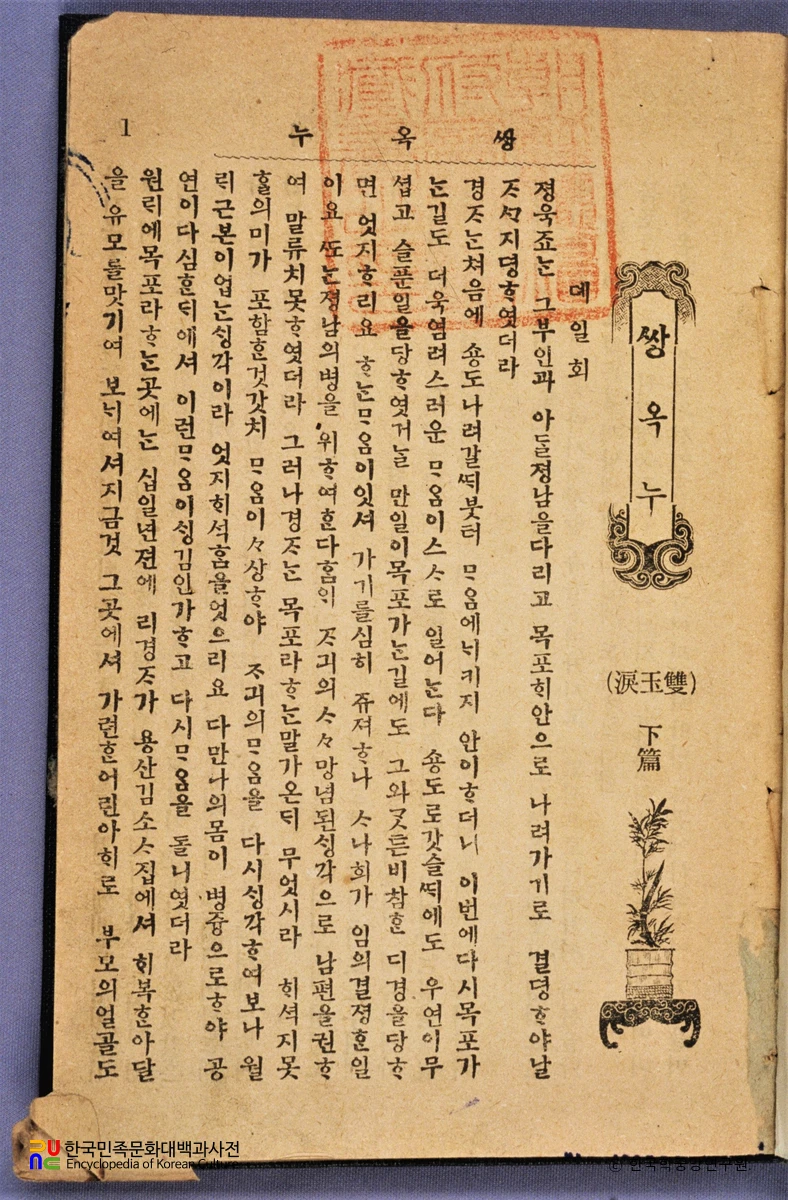 쌍옥누
(雙玉淚)
下篇
쌍 옥 누
1
뎨일회
졍욱죠는 그부인과 아들졍남을다리고 목포ᄒᆡ안으로 나려가기로 결뎡ᄒᆞ야날
ᄌᆞᄭᆞ지뎡ᄒᆞ엿더라
경ᄌᆞ는쳐음에 숑도나려갈ᄯᆡ붓터 ᄆᆞᄋᆞᆷ에ᄂᆡ키지 안이ᄒᆞ더니 이번에다시목포가
는길도 더욱염려스러운 ᄆᆞᄋᆞᆷ이스ᄉᆞ로 일어는다 숑도로갓슬ᄯᆡ에도 우연이무
셥고 슬푼일을당ᄒᆞ엿거늘 만일이목포가는길에도 그와ᄀᆞᆺ튼비참ᄒᆞᆫ 디경을당ᄒᆞ
면 엇지ᄒᆞ리요 ᄒᆞ는ᄆᆞᄋᆞᆷ이잇셔 가기를심히 쥬져ᄒᆞ나 ᄉᆞ나희가 임의결졍ᄒᆞᆫ일
이요 ᄯᅩ는졍남의병을 위ᄒᆞ여ᄒᆞᆫ다ᄒᆞᆷᄋᆡ ᄌᆞ긔의ᄉᆞ々망념된ᄉᆡᆼ각으로 남편을권ᄒᆞ
여 말류치못ᄒᆞ엿더라 그러나경ᄌᆞ는 목포라ᄒᆞ는말가온ᄃᆡ 무엇시라 ᄒᆡ셕지못
ᄒᆞᆯ의미가 포함ᄒᆞᆫ것갓치 ᄆᆞᄋᆞᆷ이々상ᄒᆞ야 ᄌᆞ긔의ᄆᆞᄋᆞᆷ을 다시ᄉᆡᆼ각ᄒᆞ여보나 월
ᄅᆡ근본이업는ᄉᆡᆼ각이라 엇지ᄒᆡ셕홈을엇으리요 다만나의몸이 병즁으로ᄒᆞ야 공
연이다심ᄒᆞᆫᄃᆡ에셔 이런ᄆᆞᄋᆞᆷ이ᄉᆡᆼ김인가ᄒᆞ고 다시ᄆᆞᄋᆞᆷ을 돌니엿더라
원ᄅᆡ에목포라ᄒᆞ는곳에는 십일년젼에 리경ᄌᆞ가 용산김소ᄉᆞ집에셔 ᄒᆡ복ᄒᆞᆫ아달
을 유모를맛기여 보ᄂᆡ여셔지금것 그곳에셔 가련ᄒᆞᆫ어린아ᄒᆡ로 부모의얼골도
한국민족문화대백과사전
Encyclopedia of Korean Culture